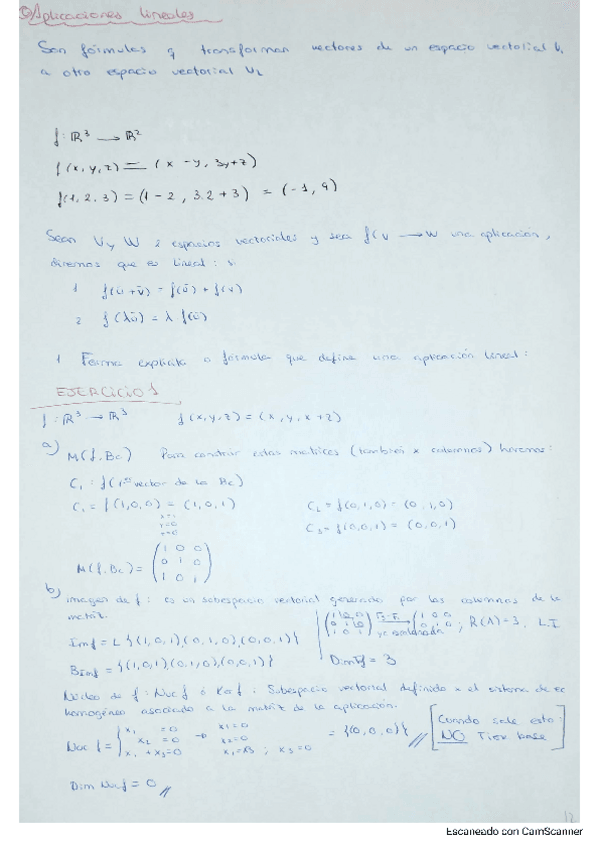 Aplicaciones lineales
Son fórmulas q transforman vectores de un espacio vectorial V₁
a otro espacio vectorial V₂
f: ℝ³ → ℝ²
f(x,y,z) = (x-y, 3y+z)
f(1,2,3) = (1-2, 3·2+3) = (-1, 9)
Sean V y W 2 espacios vectoriales y sea f(v → W una aplicación,
diremos que es lineal: si
1 f(ū+v̄) = f(ū) + f(v)
2 f(λū) = λ f(ū)
1 Forma explícita o fórmula que define una aplicación lineal:
EJERCICIO 1
f: ℝ³ → ℝ³ f(x,y,z) = (x, y, x+z)
a) M(f, Bc) Para construir estas matrices (también x columnas) hacemos:
C₁: f(1er vector de la Bc)
C₁ = f(1,0,0) = (1,0,1) C₂ = f(0,1,0) = (0,1,0)
x=1
y=0
z=0
C₃ = f(0,0,1) = (0,0,1)
M(f, Bc) = (1 0 0
0 1 0
1 0 1)
b) imagen de f: es un subespacio vectorial generado por las columnas de la
matriz.
Imf = L{(1,0,1)(0,1,0)(0,0,1)}
(1 0 0 / 0 1 0 / 1 0 1) F₃-F₁ → (1 0 0 / 0 1 0; R(A)=3, L.I.
ya escalonada
B Imf = {(1,0,1)(0,1,0)(0,0,1)} Dim If = 3
Núcleo de f: Nuc f ó Ker f: Subespacio vectorial definido x el sistema de ec
homogéneo asociado a la matriz de la aplicación.
Nuc f = { x₁ = 0 → x₁=0
x₂ = 0 x₂=0 = {(0,0,0)}
x₁ + x₃=0 x₁=x₃ ; x₃=0
Cuando sale esto:
NO Tien base
Dim Nuc f = 0
12
Escaneado con CamScanner